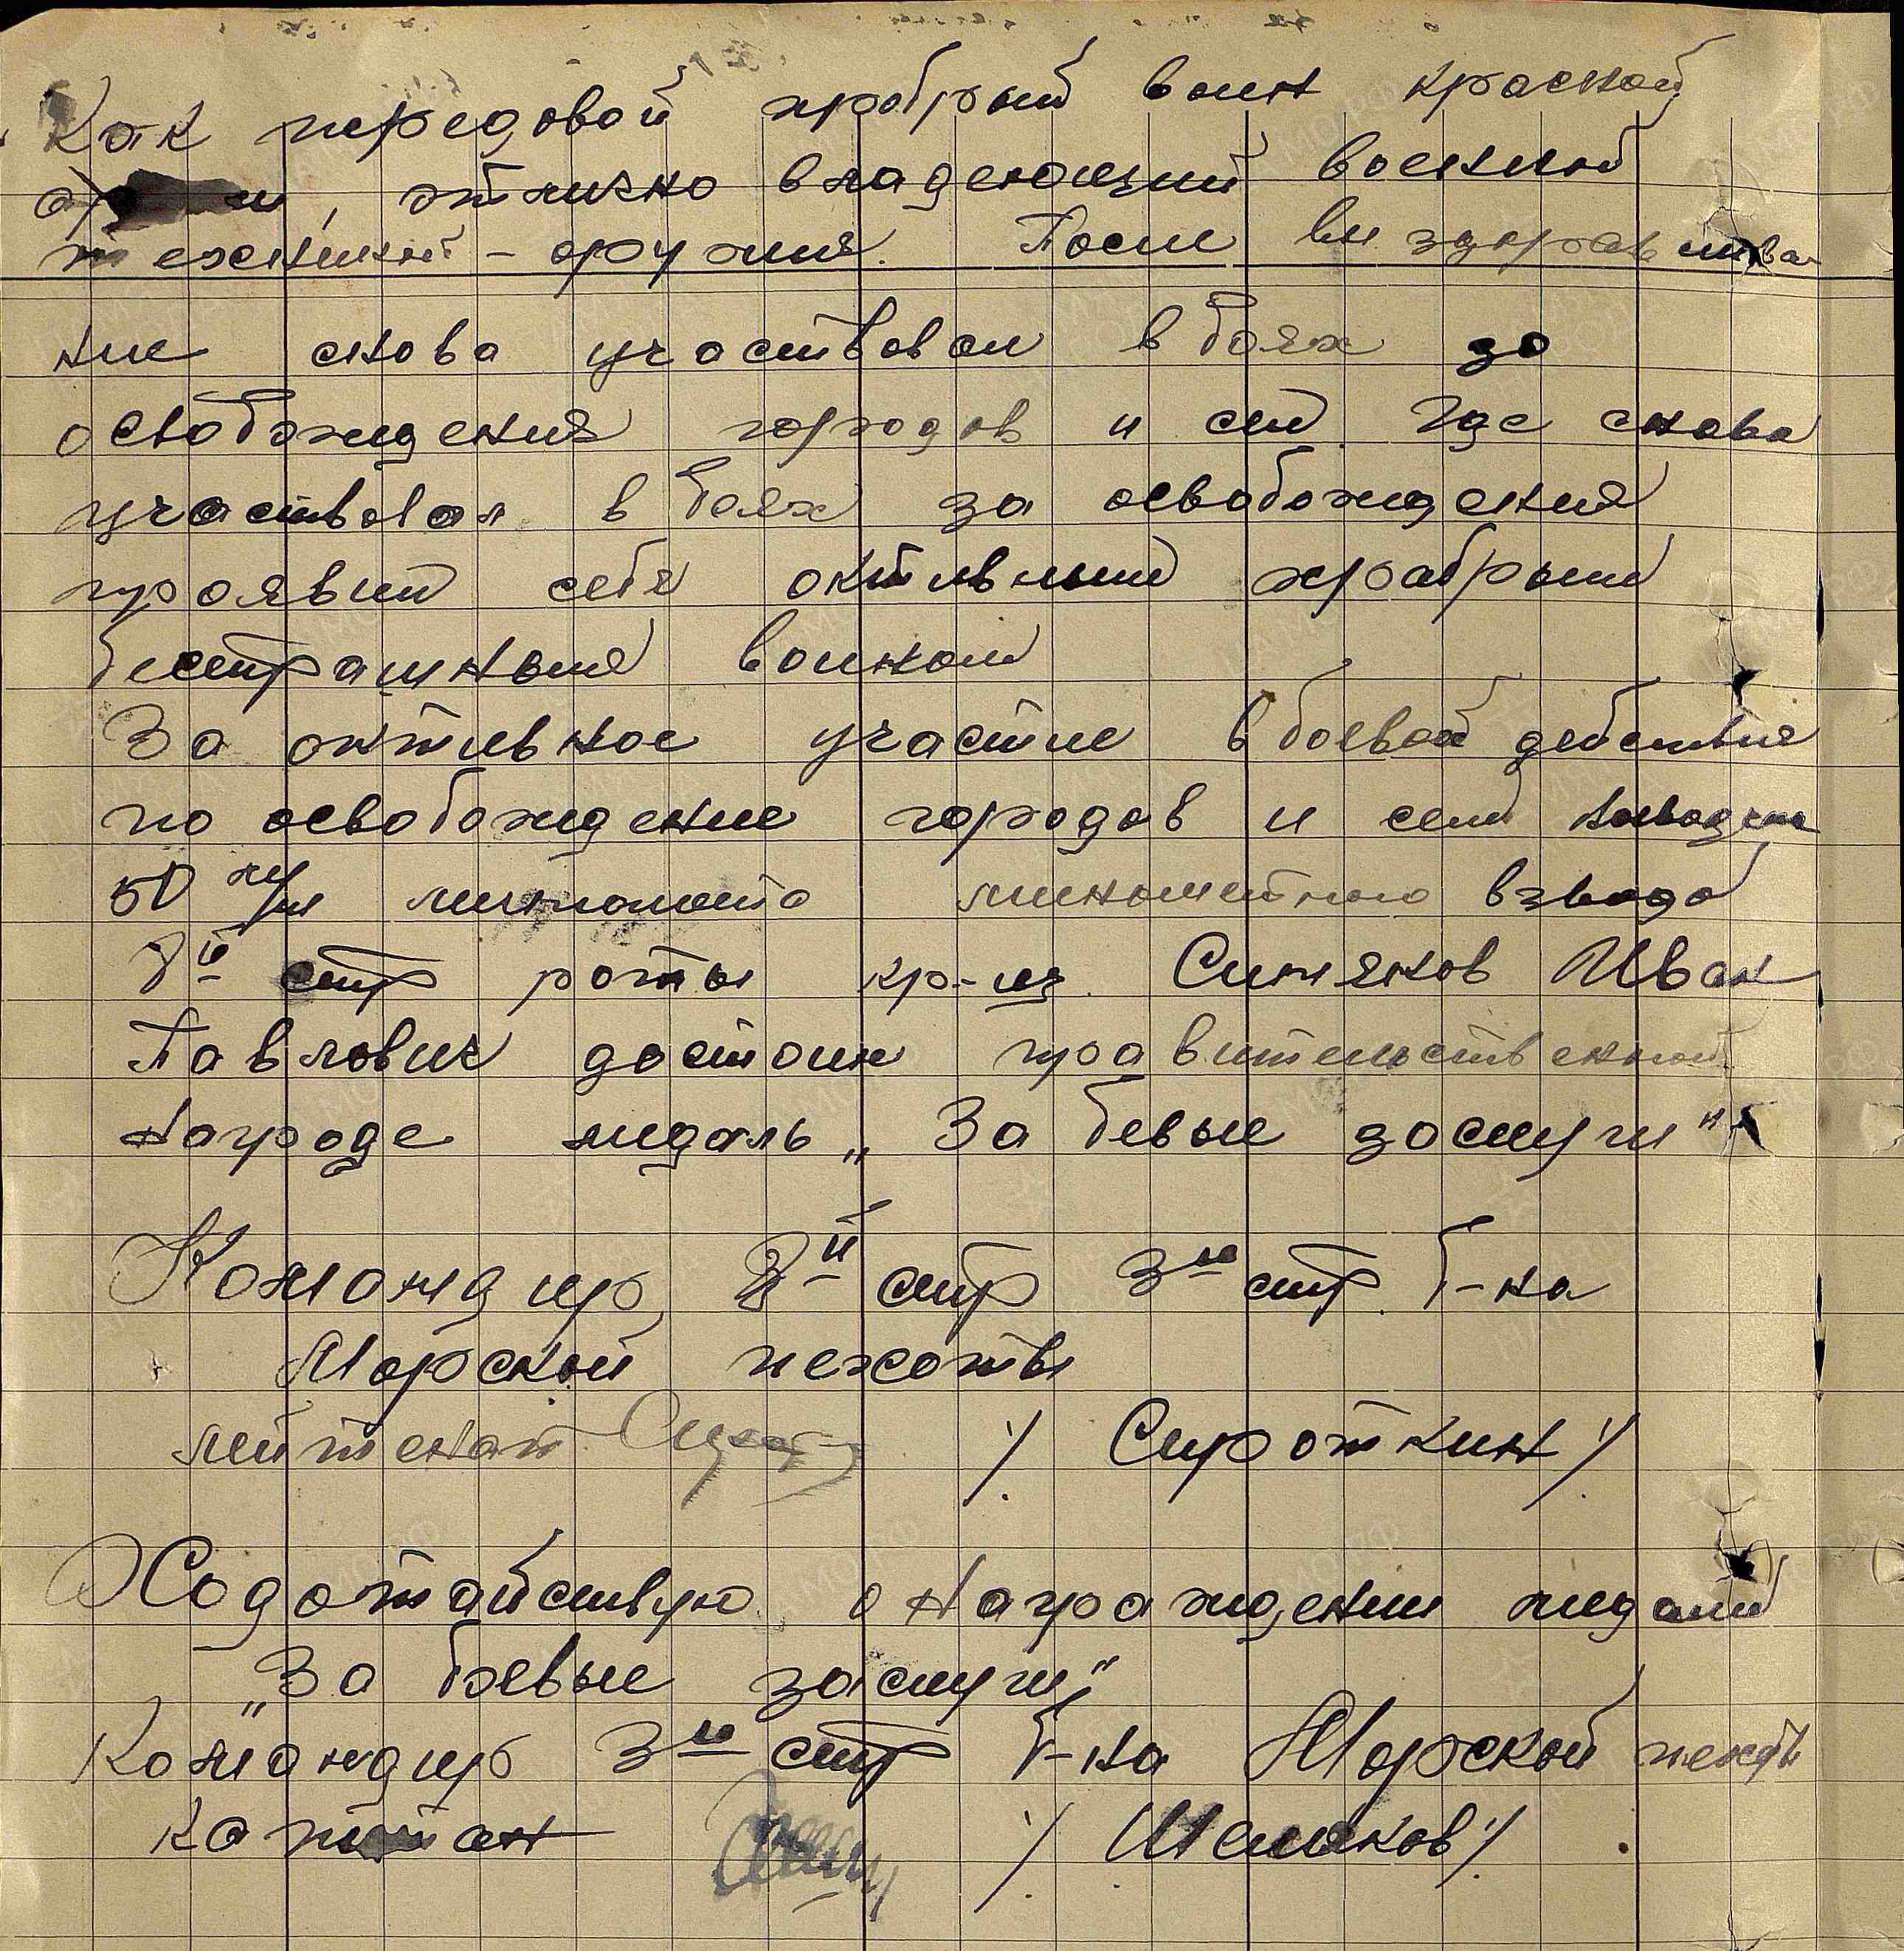 Как передовой храбрый воин красной
отлично владеющий военной
техникой - оружия. После выздоравлива-
ние снова участвовал в боях за
освобождения городов и сел. Где снова
участвовал в боях за освобождения
проявил себя активным храбрым
бестрашным воином
За активное участие в боевой действия
по освобождение городов и сел наводчик
50 м/м миномета минометного взвода
8й стр роты кр-ц. Синяков Иван
Павлович достоин правительственной
Награде медаль „За бевые заслуги"
Командир 8й стр 3го стр. б-на
Морской пехоты
лейтенант /Сироткин/
Ходотайствую о Награждении медали
„За боевые заслуги"
Командир 3го стр б-на Морской пехоты
капитан